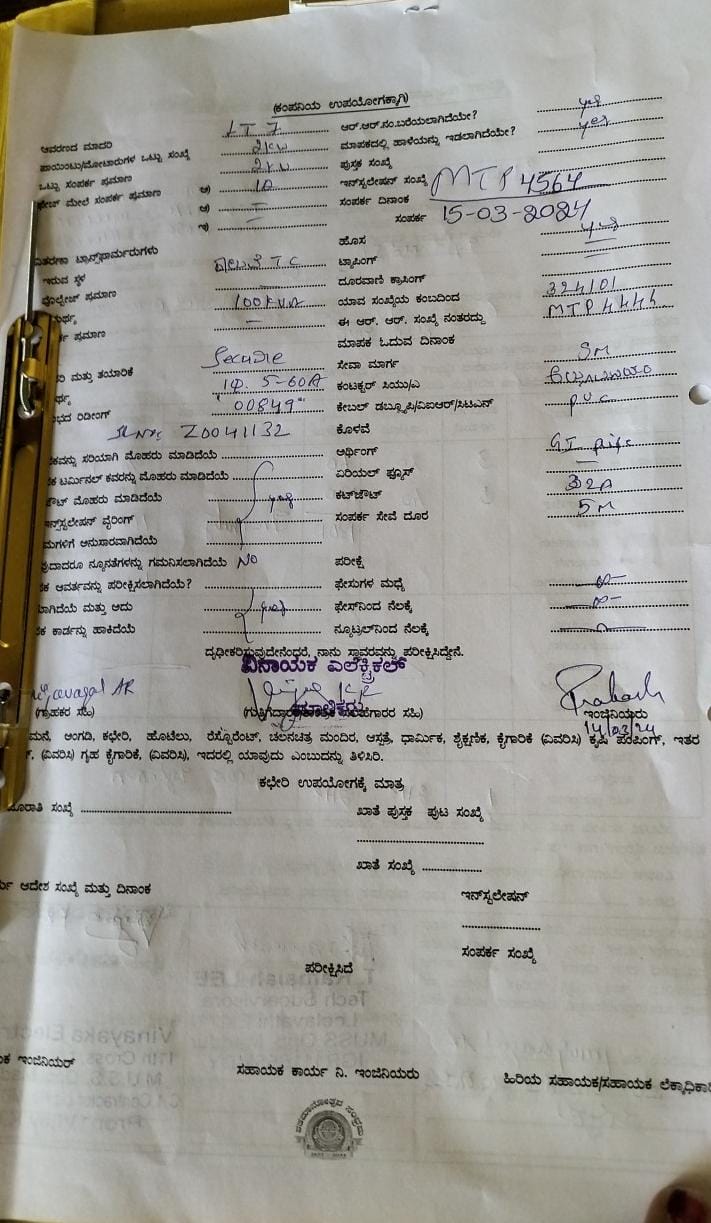 (ಕಂಪನಿಯ ಉಪಯೋಗಕ್ಕಾಗಿ)
ಆವರಣದ ಮಾದರಿ LT 7 ಆರ್.ಆರ್.ನಂ.ಬರೆಯಲಾಗಿದೆಯೇ? yes
ಪಾಯಿಂಟು/ಮೋಟಾರುಗಳ ಒಟ್ಟು ಸಂಖ್ಯೆ 2KW ಮಾಪಕದಲ್ಲಿ ಹಾಳೆಯನ್ನು ಇಡಲಾಗಿದೆಯೇ? yes
ಒಟ್ಟು ಸಂಪರ್ಕ ಪ್ರಮಾಣ 2KW ಪುಸ್ತಕ ಸಂಖ್ಯೆ
ಫೇಜ್ ಮೇಲೆ ಸಂಪರ್ಕ ಪ್ರಮಾಣ ಅ) 10 ಇನ್‌ಸ್ಟಲೇಷನ್ ಸಂಖ್ಯೆ MTP4564
ಆ) ಸಂಪರ್ಕ ದಿನಾಂಕ
ಇ) ಸಂಪರ್ಕ 15-03-2024
ಹೊಸ yes
ವಿತರಣಾ ಟ್ರಾನ್ಸ್‌ಫಾರ್ಮರುಗಳು ಟ್ಯಾಪಿಂಗ್
ಇರುವ ಸ್ಥಳ T.C ದೂರವಾಣಿ ಕ್ರಾಸಿಂಗ್
ವೋಲ್ಟೇಜ್ ಪ್ರಮಾಣ 100KVA ಯಾವ ಸಂಖ್ಯೆಯ ಕಂಬದಿಂದ 324101
ಈ ಆರ್. ಆರ್. ಸಂಖ್ಯೆ ನಂತರದ್ದು MTP4444
ಪ್ರಮಾಣ ಮಾಪಕ ಓದುವ ದಿನಾಂಕ
ಮತ್ತು ತಯಾರಿಕೆ Secure ಸೇವಾ ಮಾರ್ಗ 5M
1φ. 5-60A ಕಂಟಕ್ಟರ್ ಸಿಯು/ಎ
ರಿಡಿಂಗ್ 00849 ಕೇಬಲ್ ಡಬ್ಲ್ಯೂಪಿ/ವಿಐಆರ್/ಸಿಟಿಎಸ್ PVC
Sl No: Z0041132 ಕೊಳವೆ
ಸರಿಯಾಗಿ ಮೊಹರು ಮಾಡಿದೆಯೆ ಅರ್ಥಿಂಗ್ GI pipe
ಟರ್ಮಿನಲ್ ಕವರನ್ನು ಮೊಹರು ಮಾಡಿದೆಯೆ ಏರಿಯಲ್ ಫ್ಯೂಸ್
ಮೊಹರು ಮಾಡಿದೆಯೆ yes ಕಟ್‌ಔಟ್ 32A
ಇನ್‌ಸ್ಟಲೇಷನ್ ವೈರಿಂಗ್ ಸಂಪರ್ಕ ಸೇವೆ ದೂರ 5M
ಅನುಸಾರವಾಗಿದೆಯೆ
ನ್ಯೂನತೆಗಳನ್ನು ಗಮನಿಸಲಾಗಿದೆಯೆ NO ಪರೀಕ್ಷೆ
ಆವರ್ತವನ್ನು ಪರೀಕ್ಷಿಸಲಾಗಿದೆಯೆ? ಫೇಸುಗಳ ಮಧ್ಯೆ
ಮತ್ತು ಅದು yes ಫೇಸ್‌ನಿಂದ ನೆಲಕ್ಕೆ
ಕಾರ್ಡನ್ನು ಹಾಕಿದೆಯೆ ನ್ಯೂಟ್ರಲ್‌ನಿಂದ ನೆಲಕ್ಕೆ
ದೃಢೀಕರಿಸುವುದೇನೆಂದರೆ, ನಾನು ಸ್ಥಾವರವನ್ನು ಪರೀಕ್ಷಿಸಿದ್ದೇನೆ.
ವಿನಾಯಕ ಎಲೆಕ್ಟ್ರಿಕಲ್
Prakash
ಮಾಲೀಕರು
(ಗ್ರಾಹಕರ ಸಹಿ) ಸಹಿ) ಇಂಜಿನಿಯರು
14/03/24
ಮನೆ, ಅಂಗಡಿ, ಕಛೇರಿ, ಹೋಟೆಲು, ರೆಸ್ಟೊರೆಂಟ್, ಚಲನಚಿತ್ರ ಮಂದಿರ, ಆಸ್ಪತ್ರೆ, ಧಾರ್ಮಿಕ, ಶೈಕ್ಷಣಿಕ, ಕೈಗಾರಿಕೆ (ವಿವರಿಸಿ) ಕೃಷಿ ಪಂಪಿಂಗ್, ಇತರ
(ವಿವರಿಸಿ) ಗೃಹ ಕೈಗಾರಿಕೆ, (ವಿವರಿಸಿ), ಇದರಲ್ಲಿ ಯಾವುದು ಎಂಬುದನ್ನು ತಿಳಿಸಿರಿ.
ಕಛೇರಿ ಉಪಯೋಗಕ್ಕೆ ಮಾತ್ರ
ಸಂಖ್ಯೆ ಖಾತೆ ಪುಸ್ತಕ ಪುಟ ಸಂಖ್ಯೆ
ಖಾತೆ ಸಂಖ್ಯೆ
ಆದೇಶ ಸಂಖ್ಯೆ ಮತ್ತು ದಿನಾಂಕ
ಇನ್‌ಸ್ಟಲೇಷನ್
ಸಂಪರ್ಕ ಸಂಖ್ಯೆ
ಪರೀಕ್ಷಿಸಿದೆ
ಇಂಜಿನಿಯರ್ ಸಹಾಯಕ ಕಾರ್ಯ ನಿ. ಇಂಜಿನಿಯರು ಹಿರಿಯ ಸಹಾಯಕ/ಸಹಾಯಕ ಲೆಕ್ಕಾಧಿಕಾರಿ